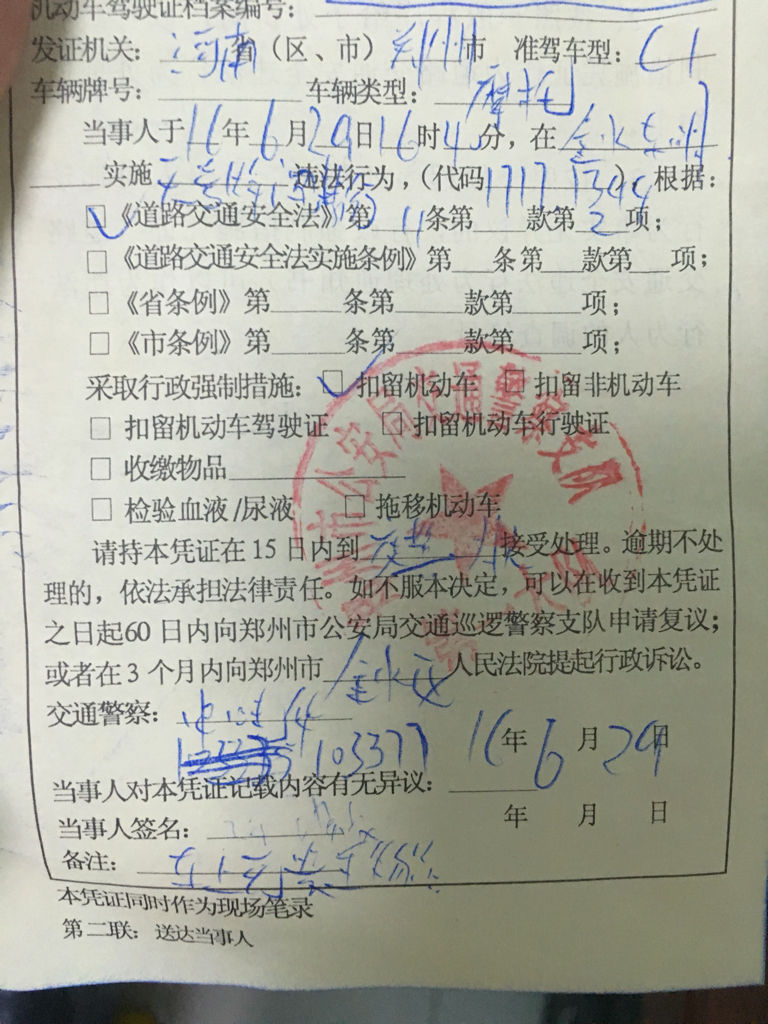 机动车驾驶证档案编号：
发证机关：河南省（区、市）郑州市 准驾车型：C1
车辆牌号： 车辆类型：摩托
当事人于16年6月29日16时4分，在金水
实施 违法行为，（代码1717 1344），根据：
☑《道路交通安全法》第11条第 款第2项；
□《道路交通安全法实施条例》第 条第 款第 项；
□《省条例》第 条第 款第 项；
□《市条例》第 条第 款第 项；
采取行政强制措施：☑ 扣留机动车 □ 扣留非机动车
□ 扣留机动车驾驶证 □ 扣留机动车行驶证
□ 收缴物品
□ 检验血液/尿液 □ 拖移机动车
请持本凭证在15日内到 接受处理。逾期不处
理的，依法承担法律责任。如不服本决定，可以在收到本凭证
之日起60日内向郑州市公安局交通巡逻警察支队申请复议；
或者在3个月内向郑州市金水区人民法院提起行政诉讼。
交通警察：
103377 16年6月29日
当事人对本凭证记载内容有无异议：
当事人签名： 年 月 日
备注：
本凭证同时作为现场笔录
第二联：送达当事人